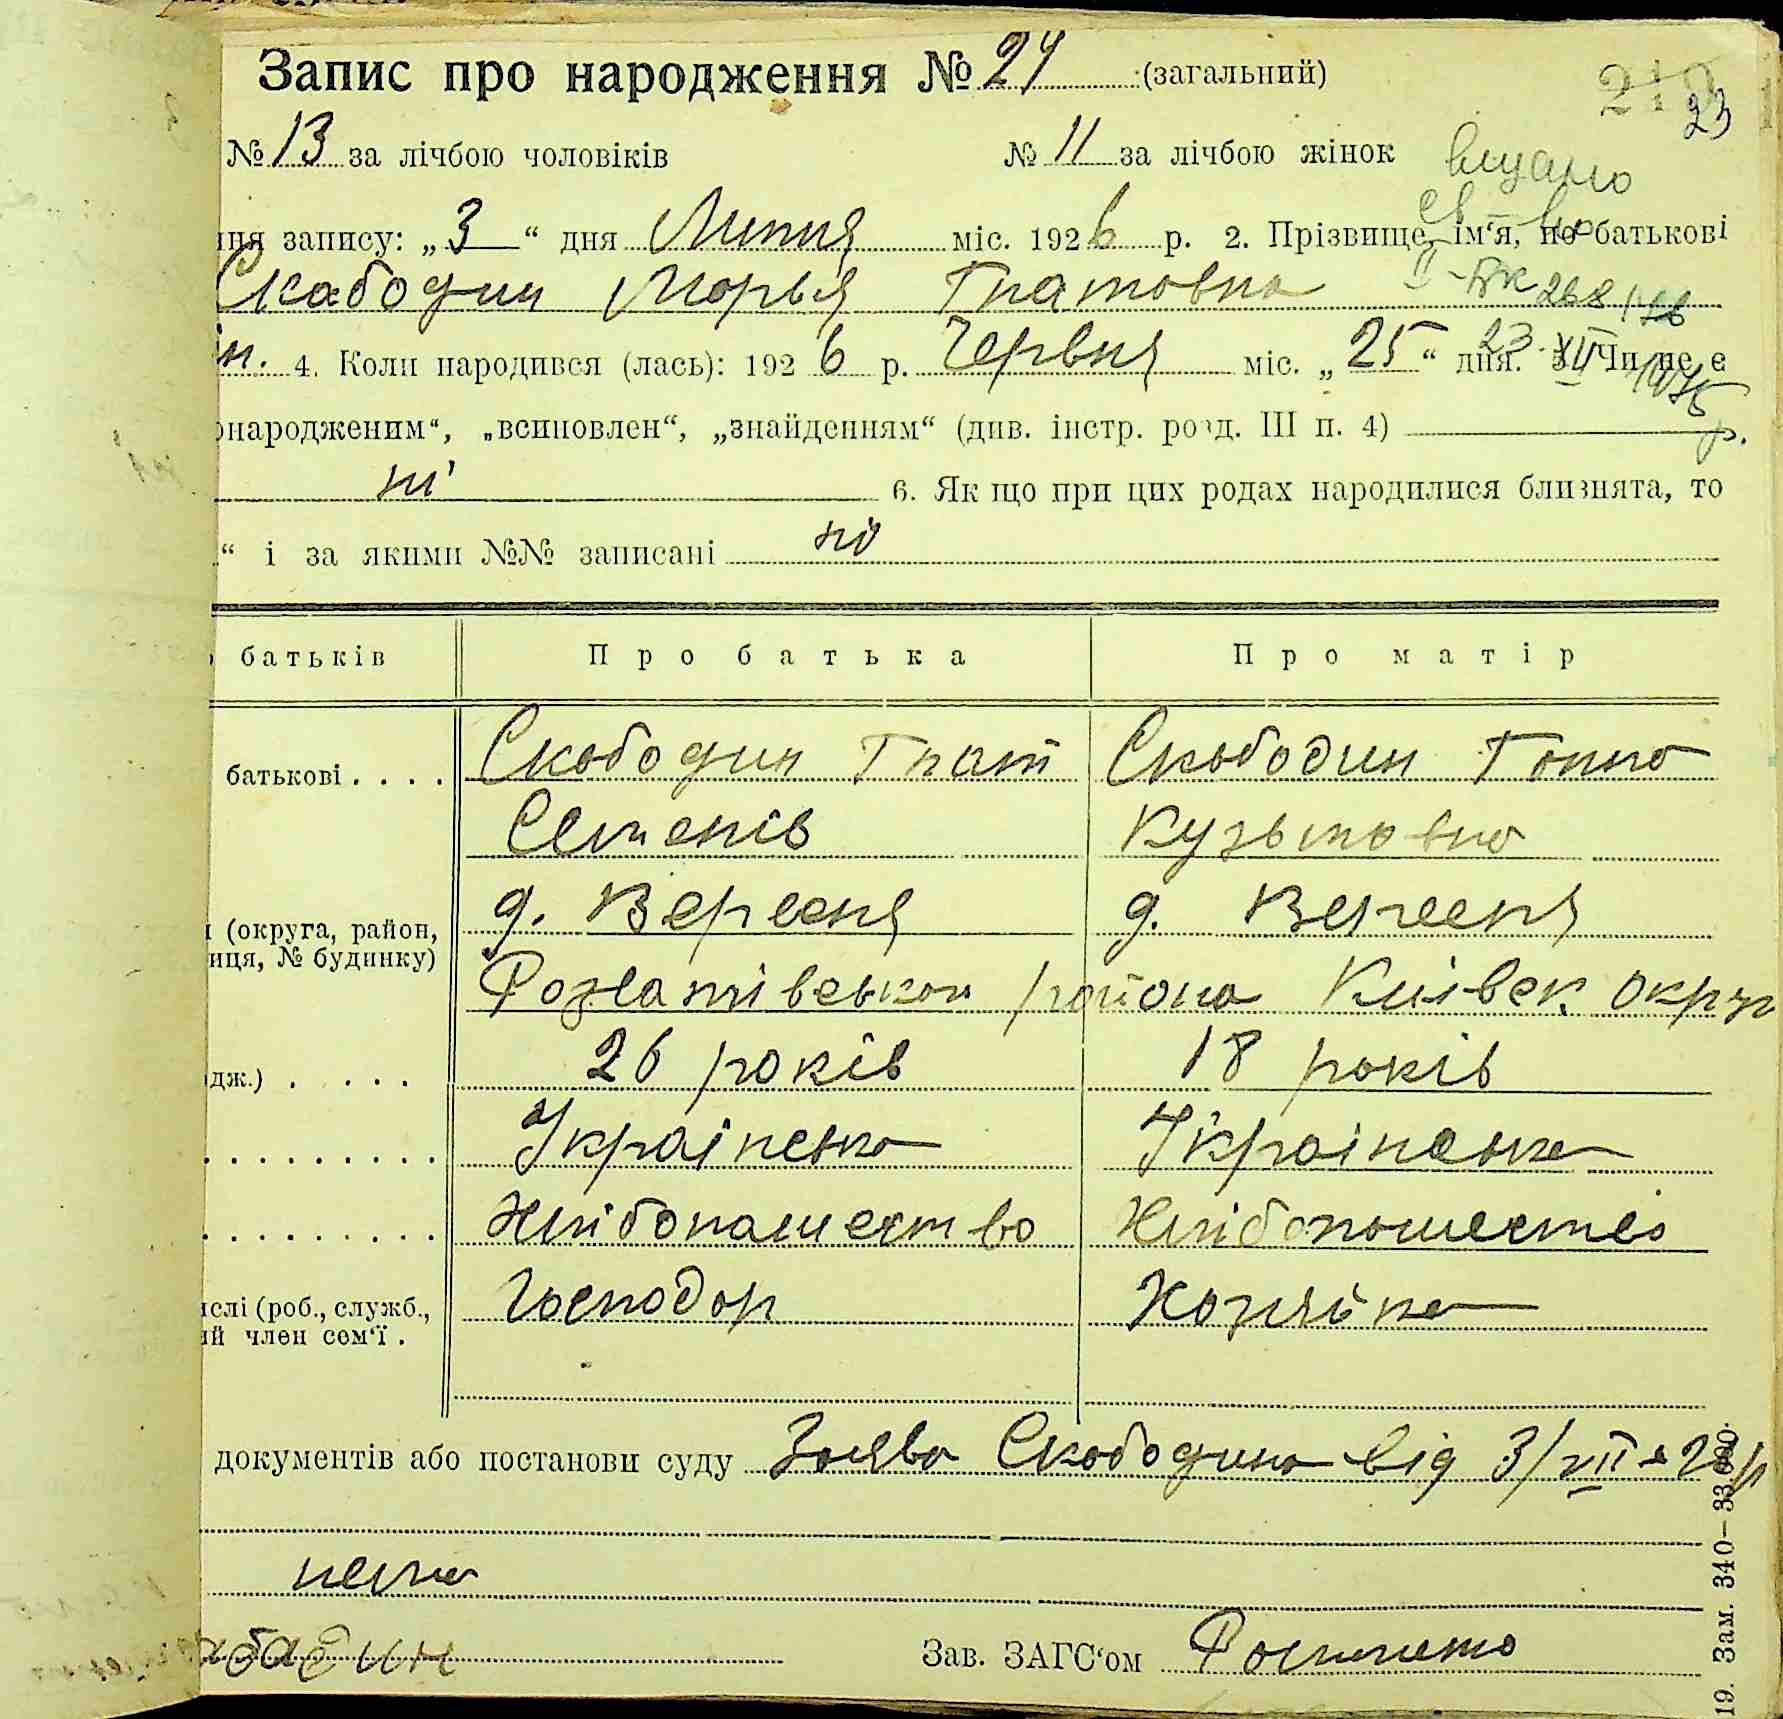 Запис про народження № 24 (загальний)
23
№ 13 за лічбою чоловіків № 11 за лічбою жінок
видано
ння запису: „3“ дня Липня міс. 1926 р. 2. Прізвище, ім‘я, по батькові
Скабодин Марья Гнатовна ІІ-БК
ін. 4. Коли народився (лась): 1926 р. Червня міс. „25“ дня. 5. Чи не є
онародженим“, „всиновлен“, „знайденням“ (див. інстр. розд. III п. 4)
ні 6. Як що при цих родах народилися близнята, то
“ і за якими №№ записані ні
батьків Про батька Про матір
батькові . . . . Скободин Гнат Скободин Ганна
Семенів Кузьмовна
(округа, район, д. Вересня д. Вересня
иця, № будинку)
Розватівськои района Київськ. Округ
дж.) . . . . . 26 років 18 років
Українська Українська
Хлібопашество Хлібопашество
іслі (роб., служб., Господар Хозяйка
ий член сем‘ї .
документів або постанови суду Заява Скободина від 3/VII
нема
абадин Зав. ЗАГС‘ом
19. Зам. 340—33.000.